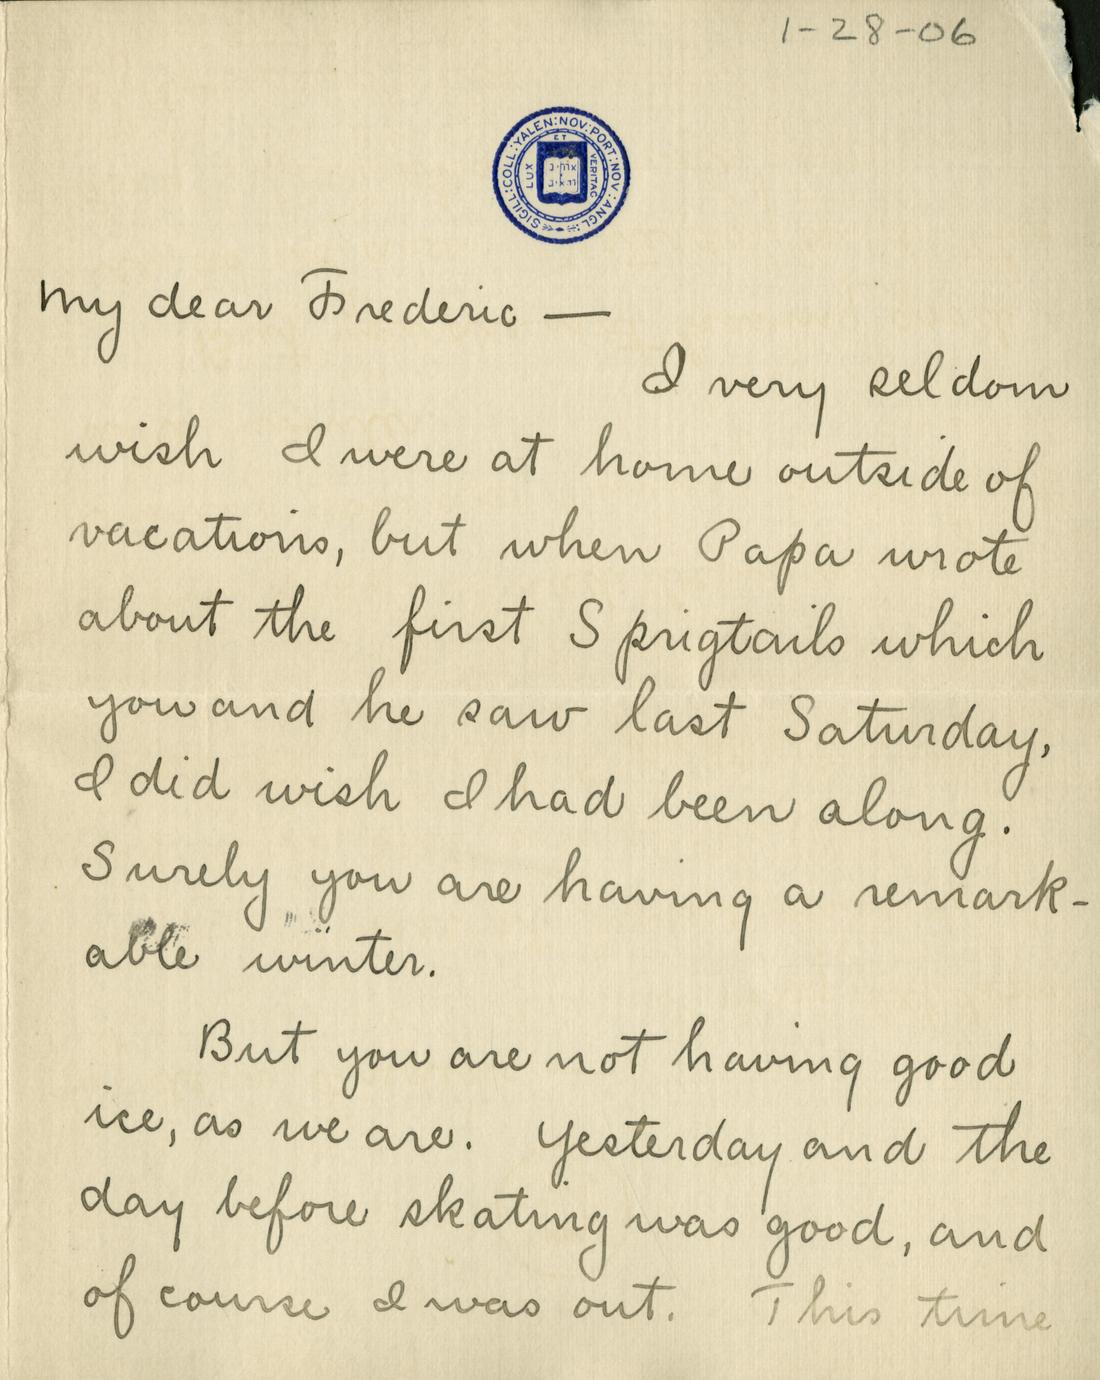 1-28-06
SIGILL:COLL:YALEN:NOV:PORT:NOV:ANGL:
LUX ET VERITAS
My dear Frederic —
I very seldom
wish I were at home outside of
vacations, but when Papa wrote
about the first Sprigtails which
you and he saw last Saturday,
I did wish I had been along.
Surely you are having a remark-
able winter.
But you are not having good
ice, as we are. Yesterday and the
day before skating was good, and
of course I was out. This time